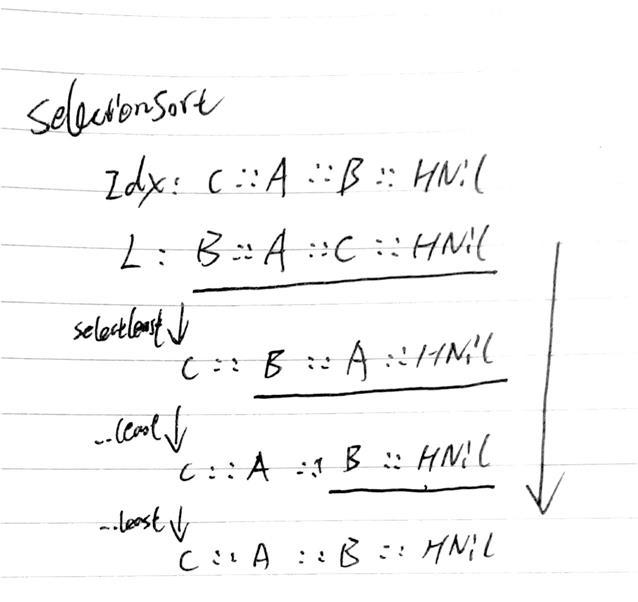 SelectionSort
Idx: C :: A :: B :: HNil
L : B :: A :: C :: HNil
selectLeast ↓
C :: B :: A :: HNil
...least ↓
C :: A :: B :: HNil
...least ↓
C :: A :: B :: HNil